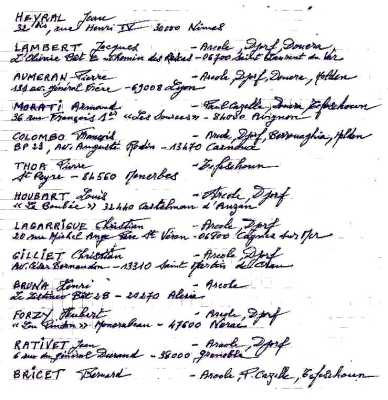 HEYRAL Jean
32 bis, rue Henri IV 30000 Nîmes
LAMBERT Jacques - Arcole, Djorf, Douera,
06700 Saint Laurent du Var
AUMERAN Pierre - Arcole, Djorf, Douera, Holden
184 av. général Frère - 69008 Lyon
MORATI Armand - Paul Cazelle, Douera, Tefeschoun
36 rue François 1er "Les Sources" - 84000 Avignon
COLOMBO François - Arcole, Djorf, Berrouaghia, Holden
BP 28, Av. Auguste Rodin - 13470 Carnoux
THOA Pierre - Tefeschoun
St Peyre - 84560 Menerbes
HOUBART Louis - Arcole, Djorf
"La Boubée" 32440 Castelnau d'Auzan
LAGARRIGUE Christian - Arcole, Djorf
20 rue Michel Ange - 06800 Cagnes sur Mer
GILLIET Christian - Arcole, Djorf
Av. César Bernaudon - 13310 Saint Martin de Crau
BRUNA Henri - Arcole
Bât 2B - 20270 Aleria
FORZY Hubert - Arcole, Djorf
47600 Nerac
RATIVET Jean - Arcole, Djorf
6 rue du général Durand - 38000 Grenoble
BRICET Bernard - Arcole, P. Cazelle, Tefeschoun